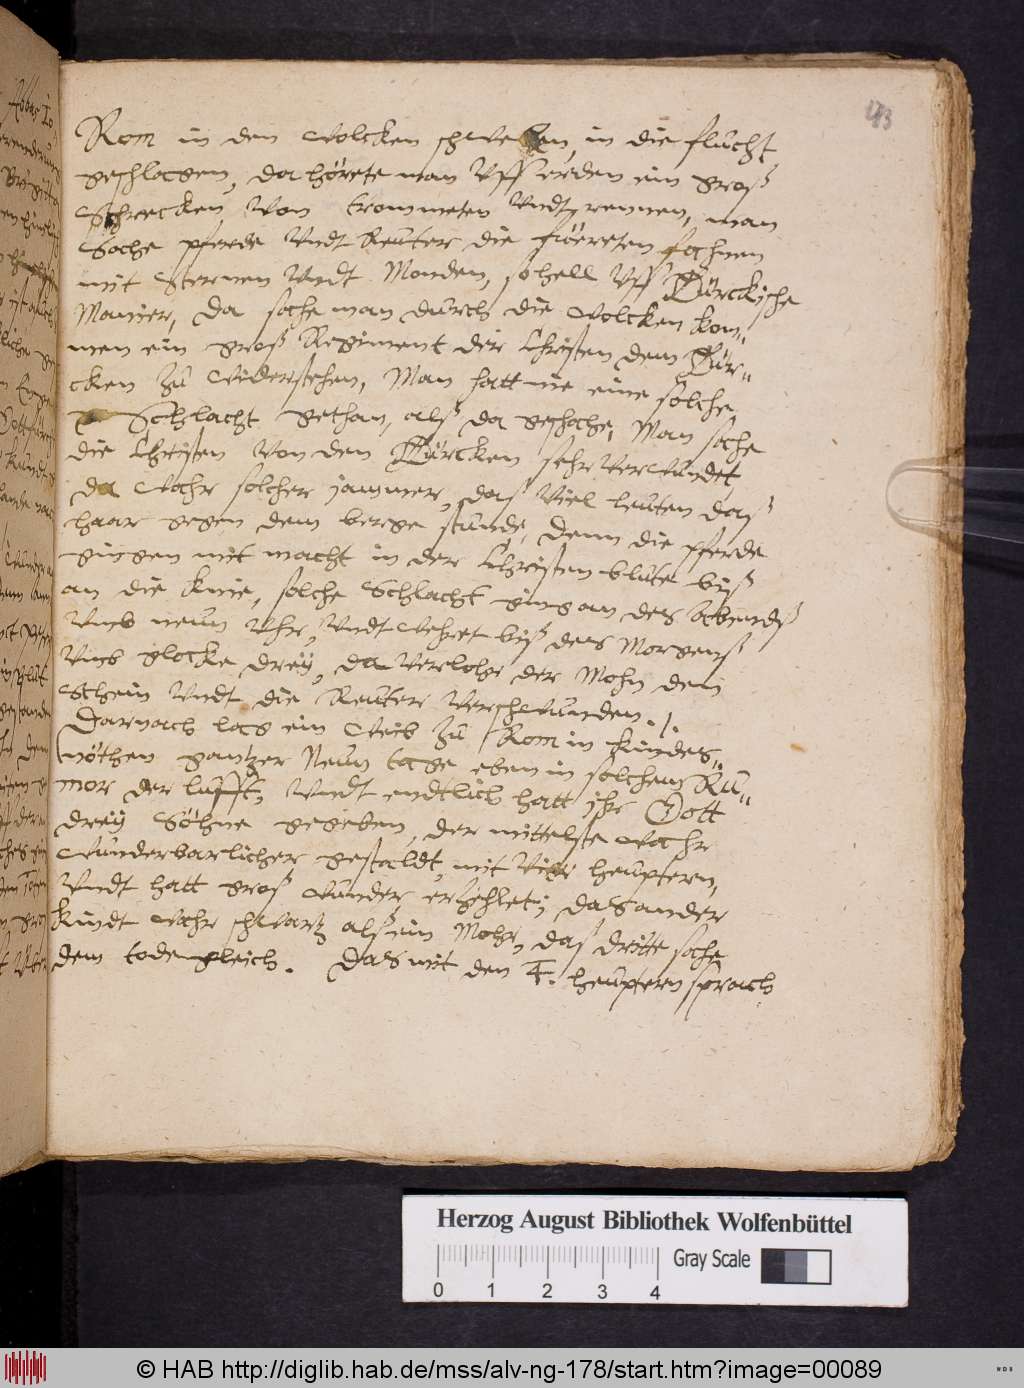 43
Rom in den Wolcken schweben, in die flucht
geschlagen, da hörete man Uff erden ein groß
Schrecken Von trommeten Undt rennen, man
Sache pferde Undt Reuter die füereten fahnen
mit Sternen Undt Monden, so hell Uff Türckische
Manier, Da sache man durch die Wolcken kom„
men ein groß Regiment der Christen dem Tür„
cken zu Widerstehen, Man hatt nie eine solche
Schlacht gethan, alß da geschahe, Man sache
die Christen Von den Türcken sehr Verwundet,
da Wahr solcher jammer, das Viel leuten daß
haar gegen dem berge stunde, Denn die pferde
gingen mit macht in der Christen blute biß
an die Knie, solche Schlacht ging an des Abendß
Umb neun Uhr, Undt Wehret biß des Morgenß
Umb glocke drey, da Verlohr der Mohn dein
Schein Undt die Reuter Verschwunden ./.
Darnach lag ein Weib zu Rom in kindes„
nöthen gantzer Neun tage eben in solchem Ru„
mor der lufft, Undt endtlich hatt ihr Gott
drey Söhne gegeben, der mittelste Wahr
Wunderbarlicher gestaldt, mit Vier heuptern,
Undt hatt groß Wunder erzehlet; das ander
kindt Wahr schwartz alß ein Mohr, das dritte sahe
dem tode gleich. Das mit den 4. heuptern sprach
Herzog August Bibliothek Wolfenbüttel
Gray Scale
0 1 2 3 4
© HAB http://diglib.hab.de/mss/alv-ng-178/start.htm?image=00089